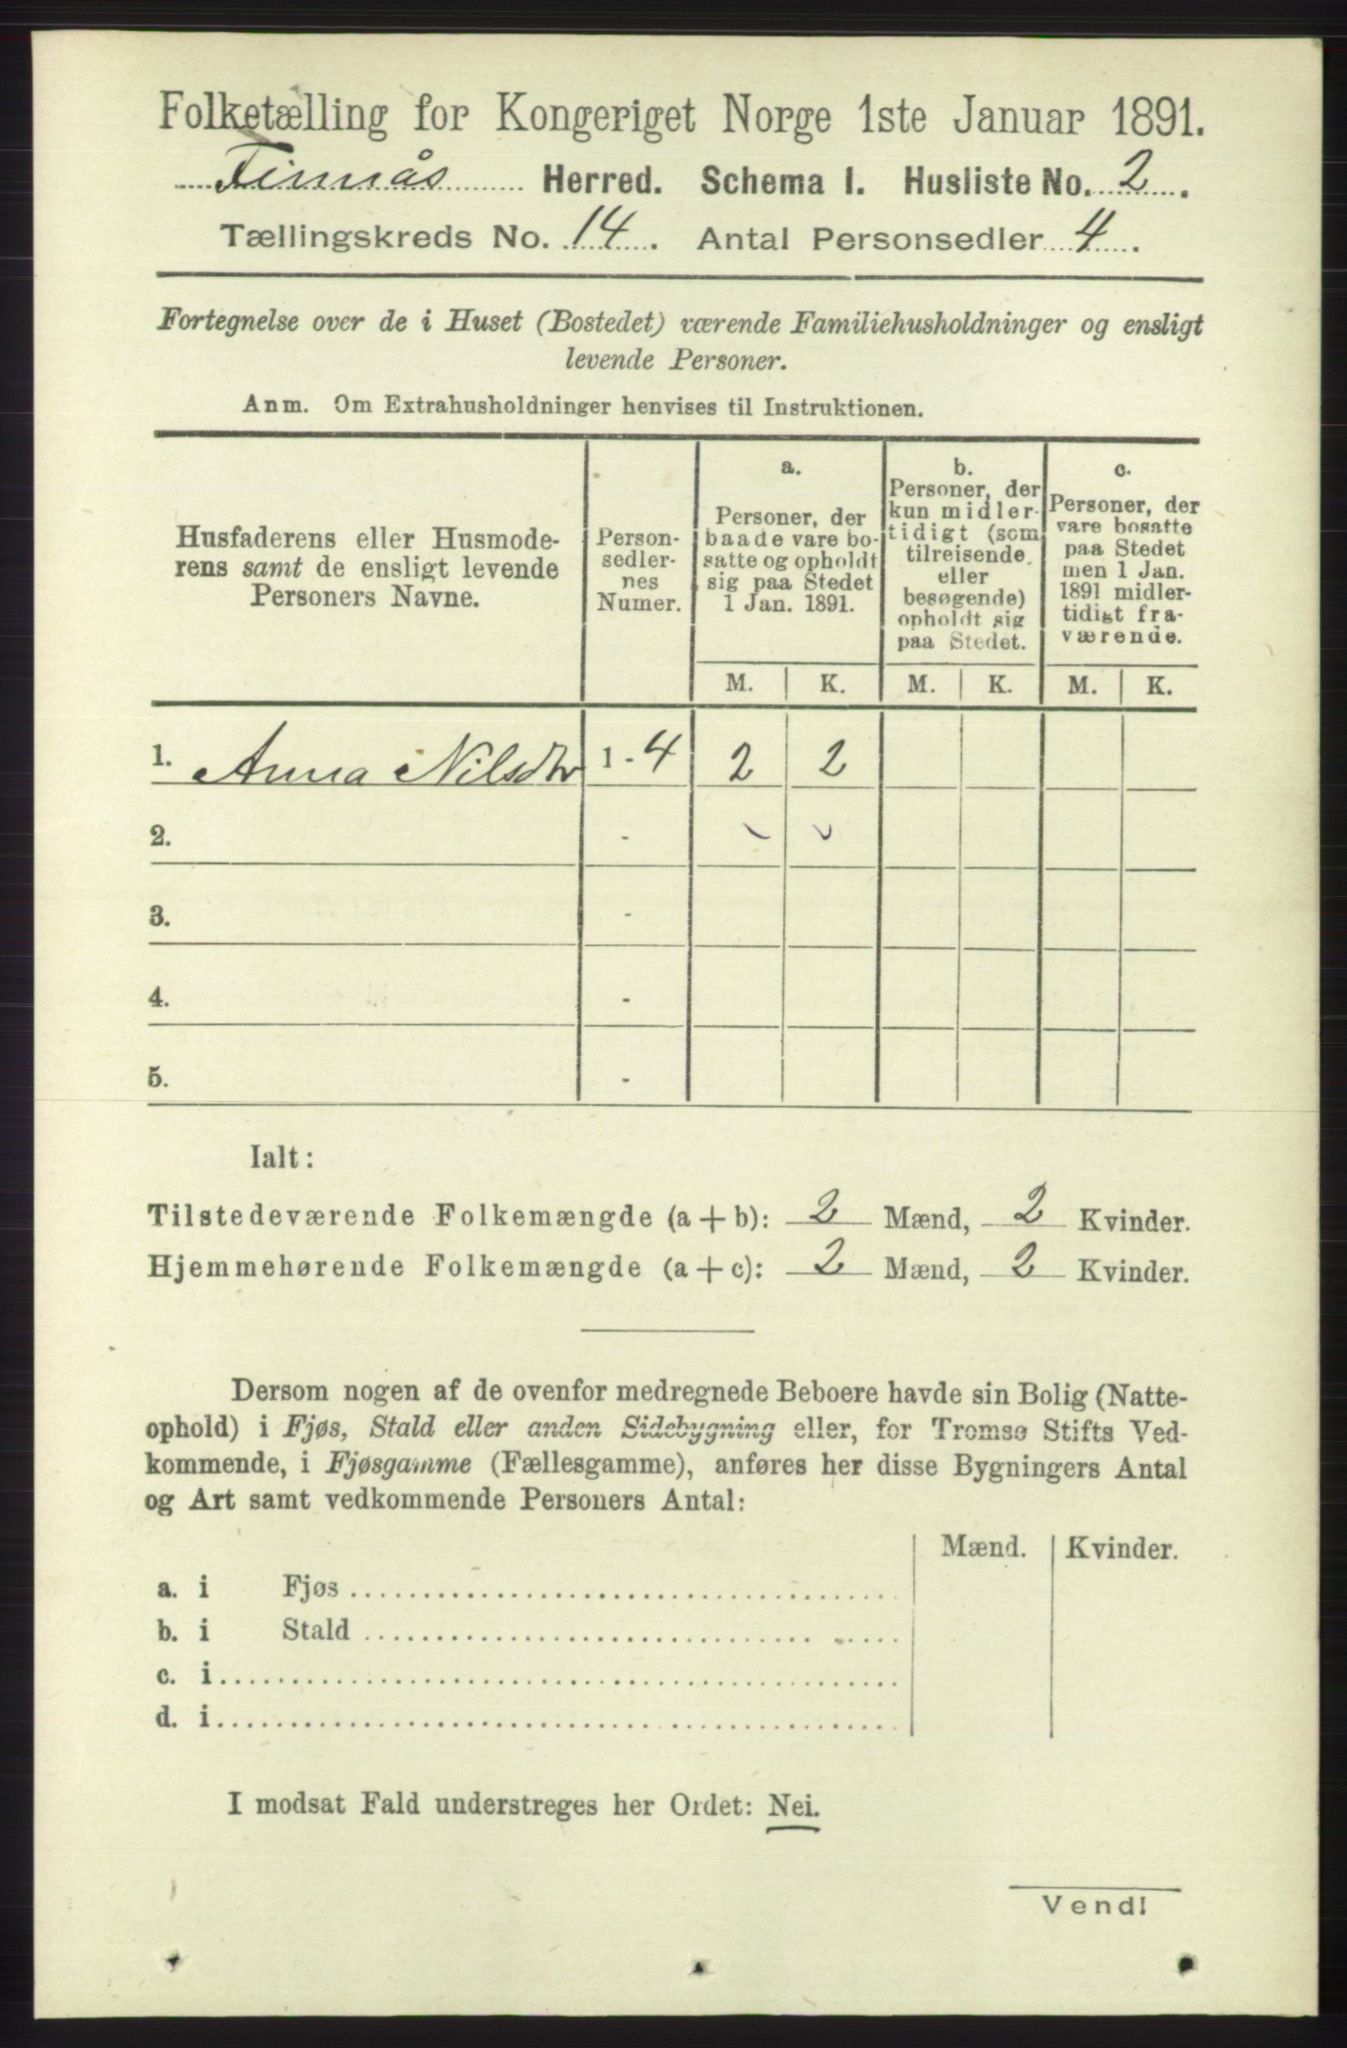 Folketælling for Kongeriget Norge 1ste Januar 1891.
Finnås Herred. Schema I. Husliste No. 2.
Tællingskreds No. 14. Antal Personsedler 4.
Fortegnelse over de i Huset (Bostedet) værende Familiehusholdninger og ensligt
levende Personer.
Anm. Om Extrahusholdninger henvises til Instruktionen.
Husfaderens eller Husmode-
rens samt de ensligt levende
Personers Navne.
Person-
sedler-
nes
Numer.
a.
Personer, der
baade vare bo-
satte og opholdt
sig paa Stedet
1 Jan. 1891.
b.
Personer, der
kun midler-
tidigt (som
tilreisende
eller
besøgende)
opholdt sig
paa Stedet.
c.
Personer, der
vare bosatte
paa Stedet
men 1 Jan.
1891 midler-
tidigt fra-
værende.
M. K. M. K. M. K.
1. Anna Nilsdtr 1 - 4 2 2
2. -
3. -
4. -
5. -
Ialt:
Tilstedeværende Folkemængde (a + b): 2 Mænd, 2 Kvinder.
Hjemmehørende Folkemængde (a + c): 2 Mænd, 2 Kvinder.
Dersom nogen af de ovenfor medregnede Beboere havde sin Bolig (Natte-
ophold) i Fjøs, Stald eller anden Sidebygning eller, for Tromsø Stifts Ved-
kommende, i Fjøsgamme (Fællesgamme), anføres her disse Bygningers Antal
og Art samt vedkommende Personers Antal:
Mænd. Kvinder.
a. i Fjøs
b. i Stald
c. i
d. i
I modsat Fald understreges her Ordet: Nei.
Vend!